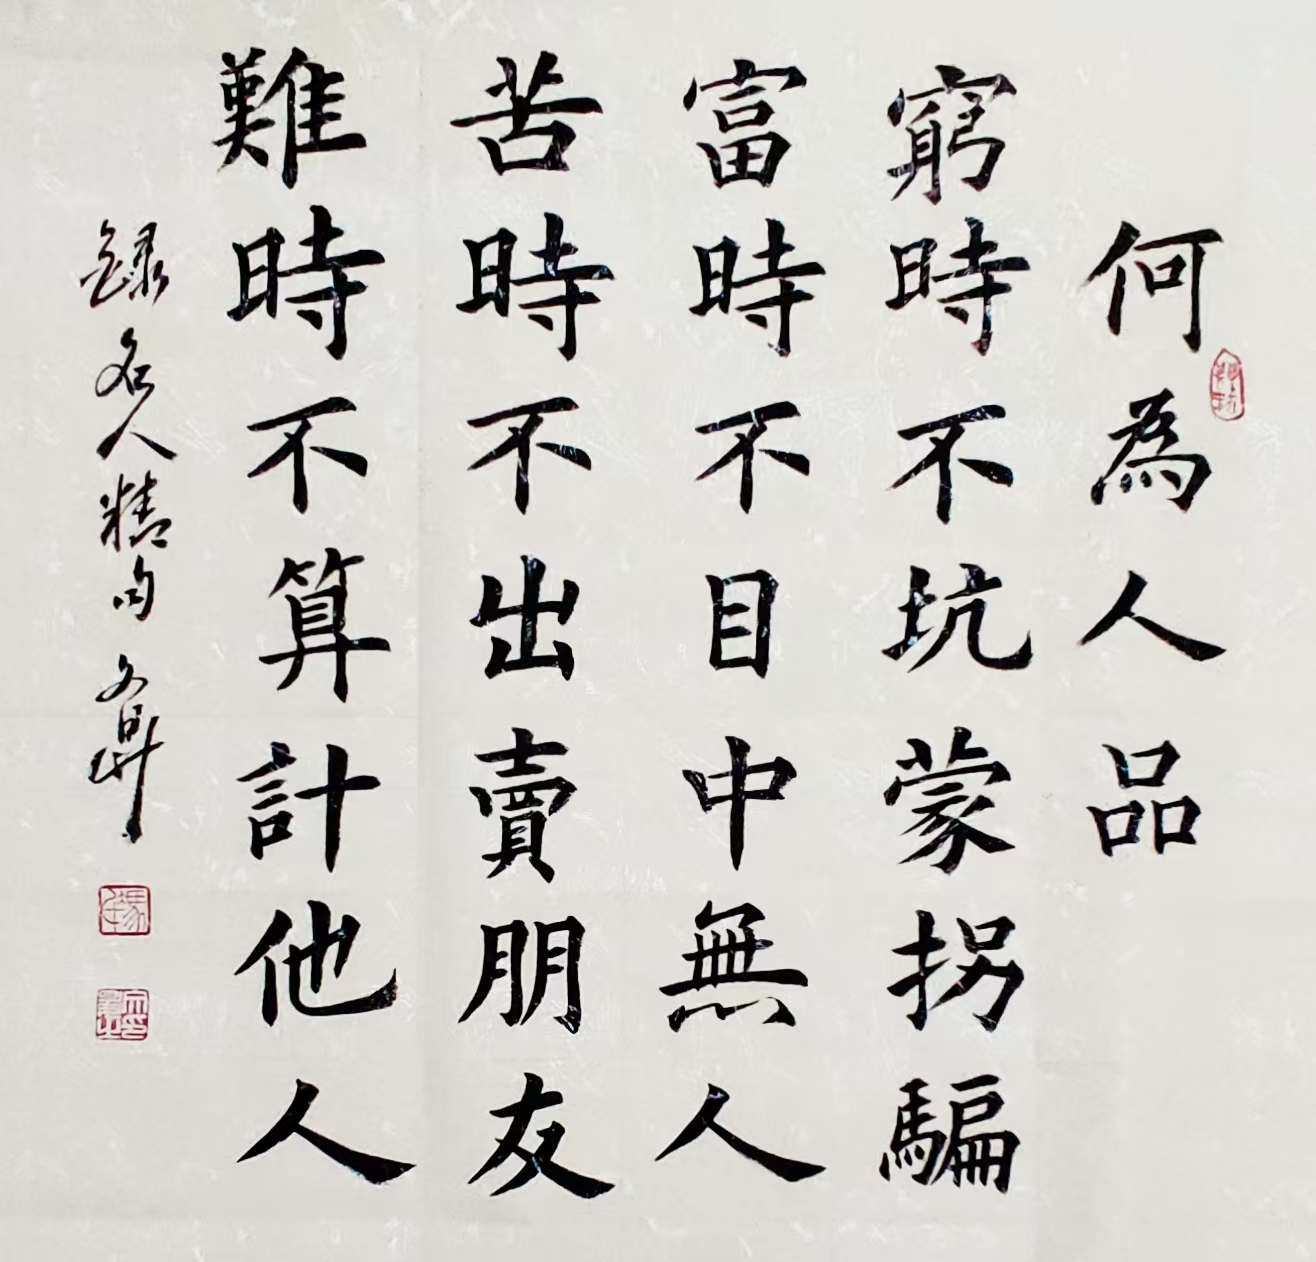 何為人品
窮時不坑蒙拐騙
富時不目中無人
苦時不出賣朋友
難時不算計他人
錄名人精句 文鼎